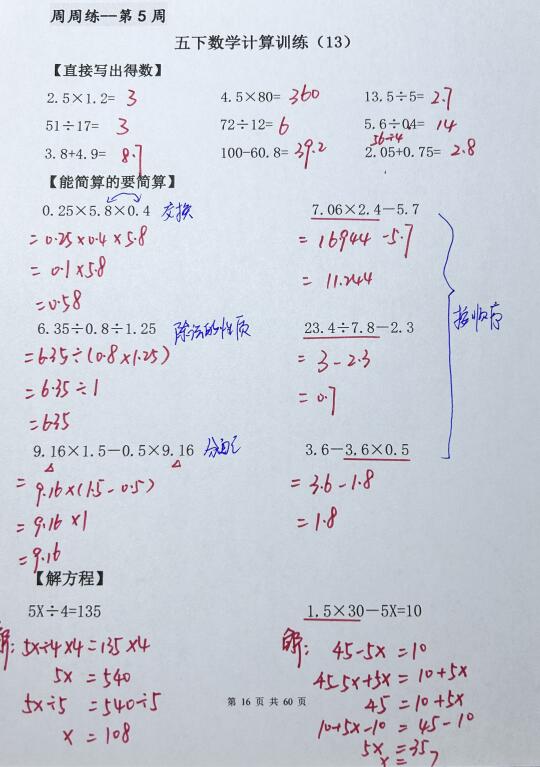 周周练--第5周
五下数学计算训练（13）
【直接写出得数】
2.5×1.2= 3 4.5×80= 360 13.5÷5= 2.7
51÷17= 3 72÷12= 6 5.6÷0.4= 14
56÷4
3.8+4.9= 8.7 100-60.8= 39.2 2.05+0.75= 2.8
【能简算的要简算】
0.25×5.8×0.4 交换 7.06×2.4－5.7
=0.25×0.4×5.8 =16.944-5.7
=0.1×5.8 =11.244
=0.58
6.35÷0.8÷1.25 除法的性质 23.4÷7.8－2.3 按顺序
=6.35÷(0.8×1.25) =3-2.3
=6.35÷1 =0.7
=6.35
9.16×1.5－0.5×9.16 分配 3.6－3.6×0.5
=9.16×(1.5-0.5) =3.6-1.8
=9.16×1 =1.8
=9.16
【解方程】
5X÷4=135 1.5×30－5X=10
解: 5x÷4×4=135×4 解: 45-5x=10
5x=540 45-5x+5x=10+5x
5x÷5=540÷5 45=10+5x
x=108 10+5x-10=45-10
5x=35
x=7
第 16 页 共 60 页